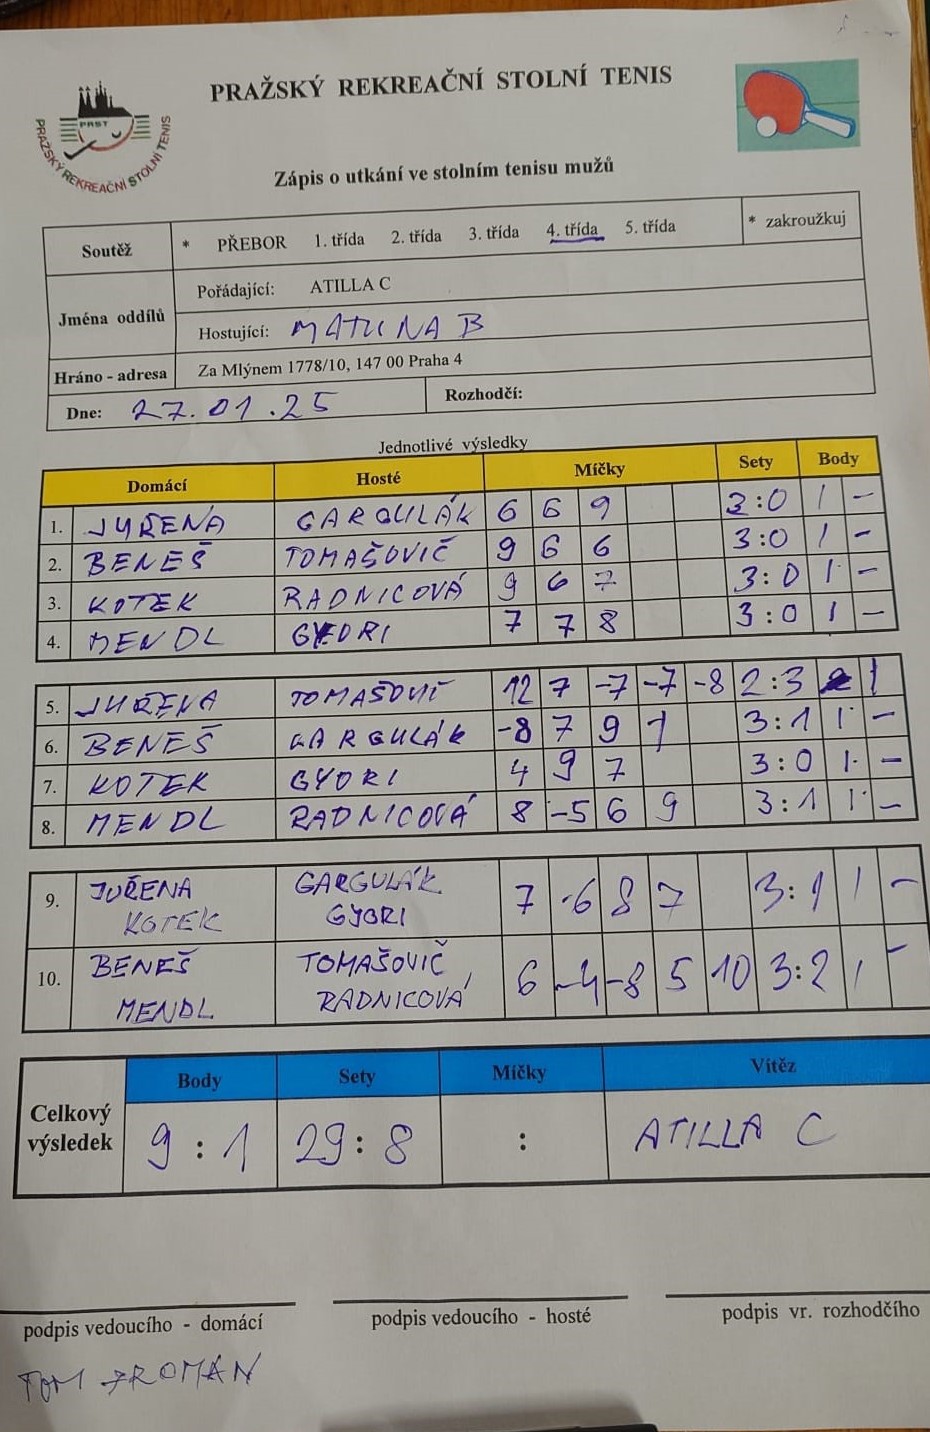 PRAŽSKÝ REKREAČNÍ STOLNÍ TENIS
PRST
PRAŽSKÝ REKREAČNÍ STOLNÍ TENIS
Zápis o utkání ve stolním tenisu mužů
Soutěž * PŘEBOR 1. třída 2. třída 3. třída 4. třída 5. třída * zakroužkuj
Jména oddílů
Pořádající: ATILLA C
Hostující: MATURNA B
Hráno - adresa Za Mlýnem 1778/10, 147 00 Praha 4
Dne: 27.01.25 Rozhodčí:
Jednotlivé výsledky
Domácí Hosté Míčky Sety Body
1. JUŘENA GARGULÁK 6 6 9 3:0 1 -
2. BENEŠ TOMAŠOVIČ 9 6 6 3:0 1 -
3. KOTEK RADNICOVÁ 9 6 7 3:0 1 -
4. MENDL GYORI 7 7 8 3:0 1 -
5. JUŘENA TOMAŠOVIČ 12 7 -7 -7 -8 2:3 1
6. BENEŠ GARGULÁK -8 7 9 7 3:1 1 -
7. KOTEK GYORI 4 9 7 3:0 1 -
8. MENDL RADNICOVÁ 8 -5 6 9 3:1 1 -
9. JUŘENA GARGULÁK 7 -6 8 7 3:1 1 -
KOTEK GYORI
10. BENEŠ TOMAŠOVIČ 6 -4 -8 5 10 3:2 1 -
MENDL RADNICOVÁ
Body Sety Míčky Vítěz
Celkový výsledek 9:1 29:8 : ATILLA C
podpis vedoucího - domácí podpis vedoucího - hosté podpis vr. rozhodčího
TOM ZROMAN